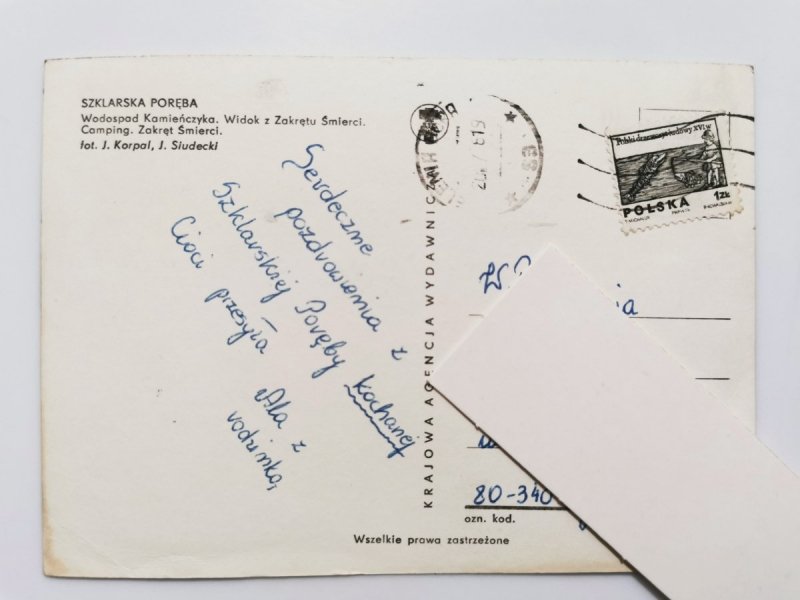 SZKLARSKA PORĘBA
Wodospad Kamieńczyka. Widok z Zakrętu Śmierci.
Camping. Zakręt Śmierci.
fot. J. Korpal, J. Siudecki
Serdeczne
pozdrowienia z
Szklarskiej Poręby kochanej
Cioci przesyła Ala z
rodzinką,
KRAJOWA AGENCJA WYDAWNICZA
Polski drzeworyt ludowy XVI w
POLSKA 1 ZŁ
W.
80-340
ozn. kod.
Wszelkie prawa zastrzeżone